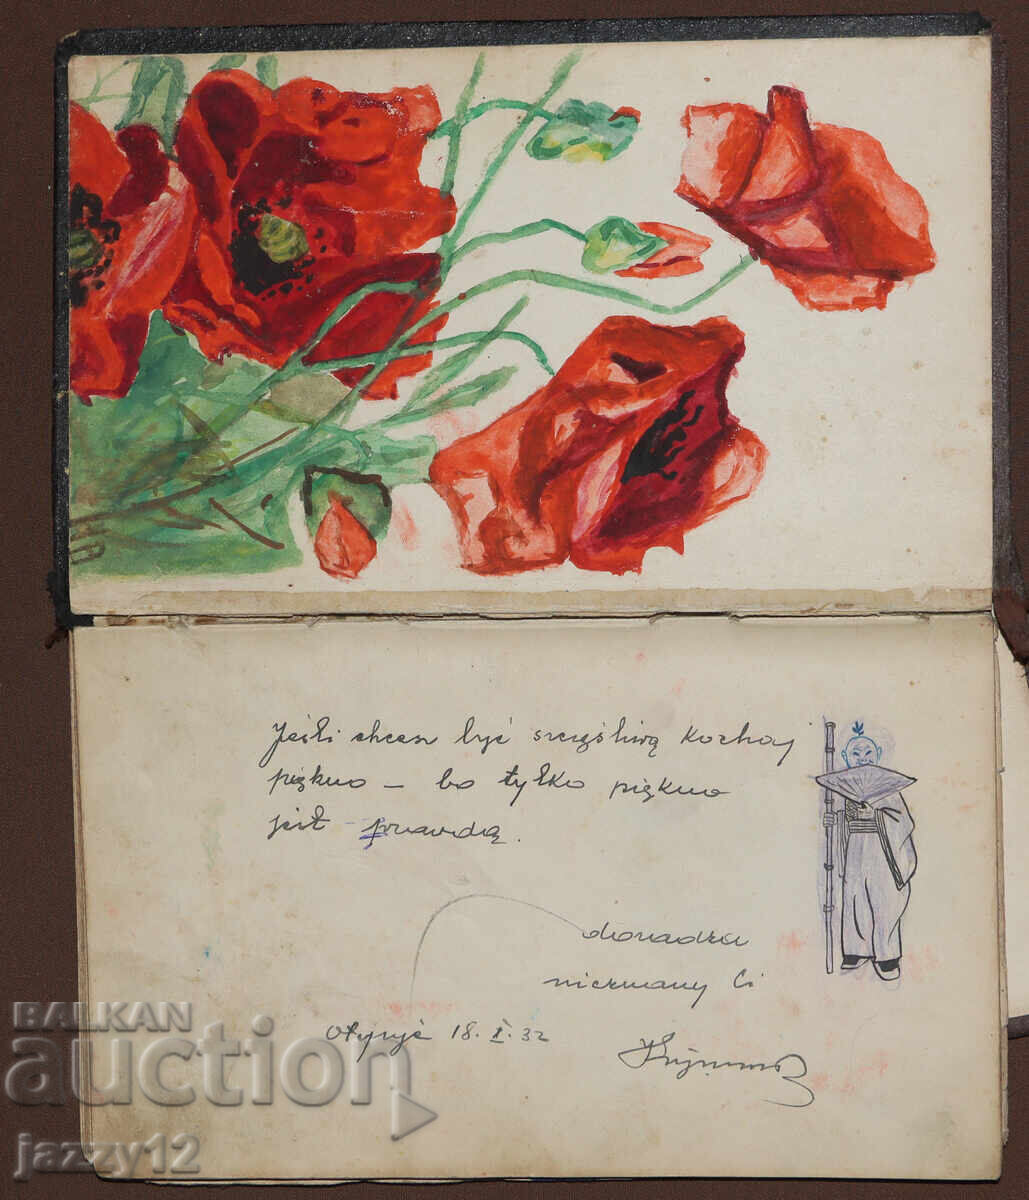 Jeśli chcesz być szczęśliwą kochaj
piękno – bo tylko piękno
jest prawdą.
doradza
nieznany Ci
18.X.32
BALKAN
auction
jazzy12